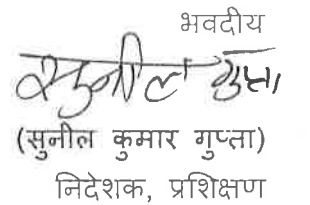 भवदीय
सुनील गुप्ता
(सुनील कुमार गुप्ता)
निदेशक, प्रशिक्षण